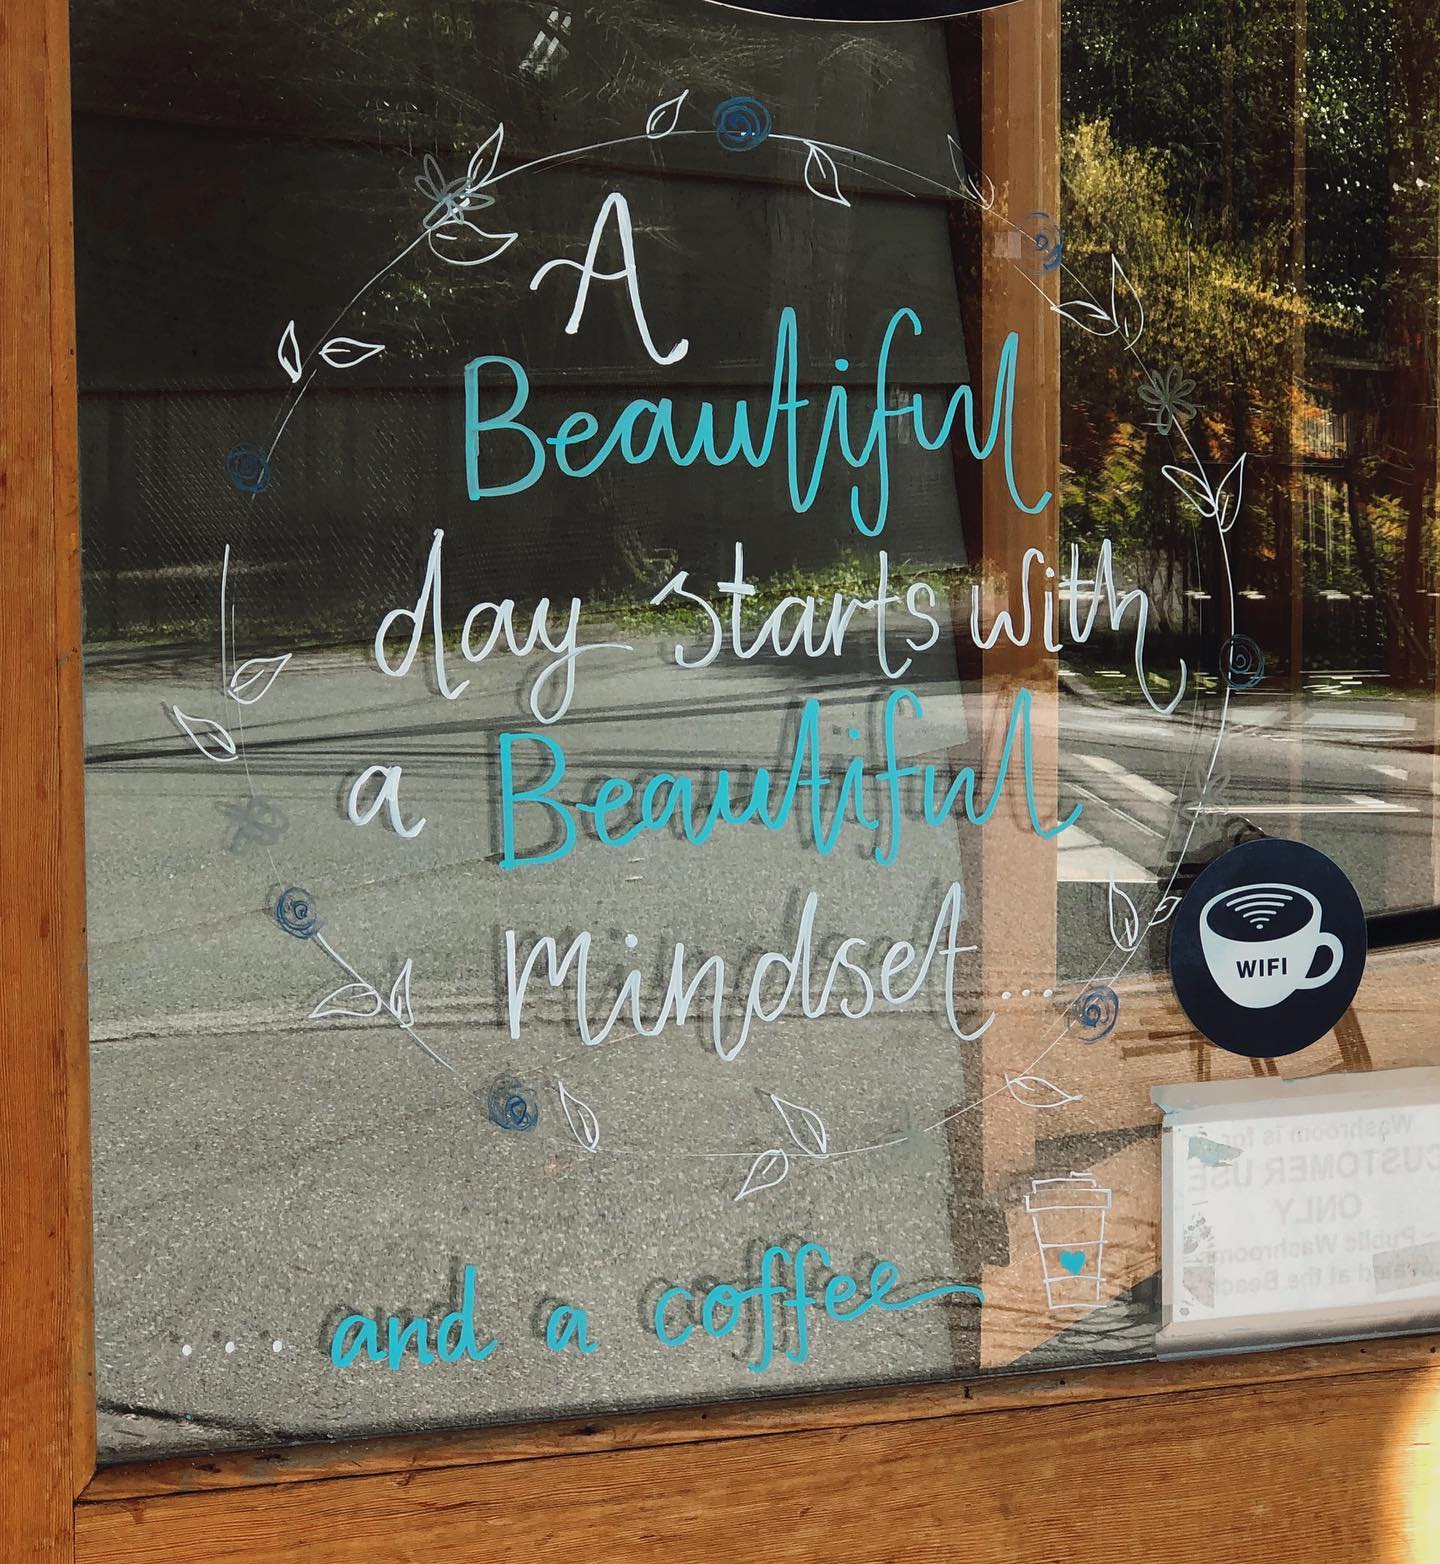 A
Beautiful
day starts with
a Beautiful
mindset...
.... and a coffee
WIFI
Washroom is for
CUSTOMER USE
ONLY
- Public Washrooms
at the Beach